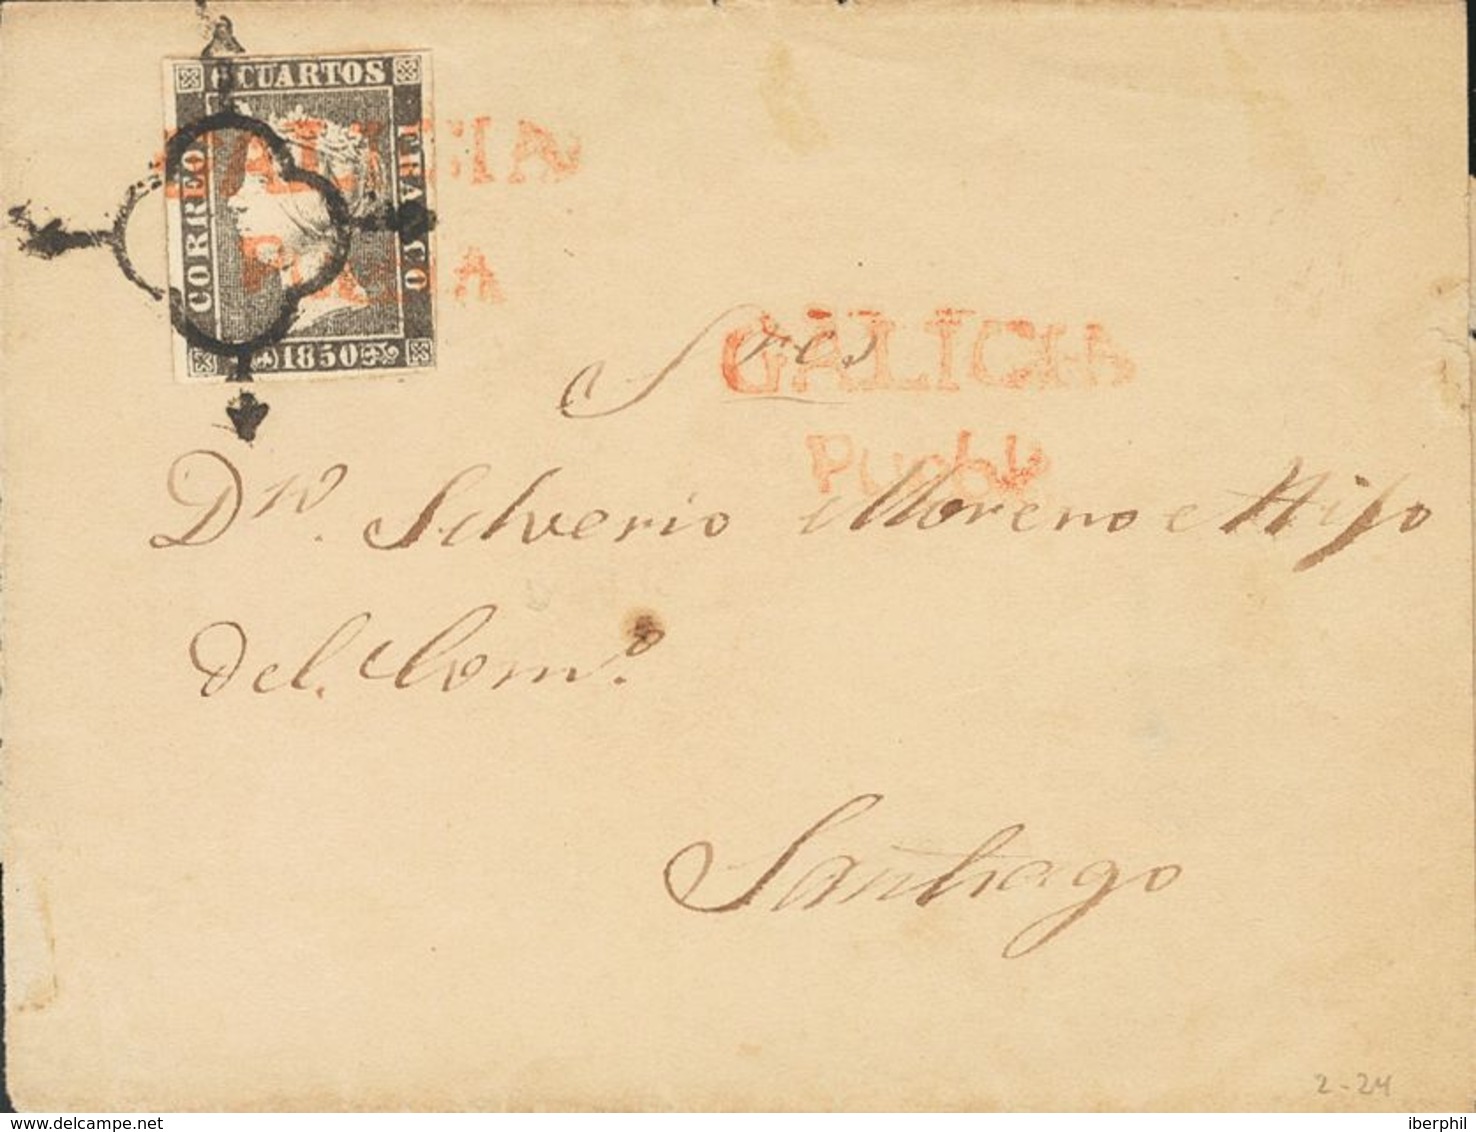 6 CUARTOS
CORREO
FRANCO
1850
GALICIA
GALICIA
Sres
Dn. Silverio Moreno e Hijo
del Como.
Santiago
2-24
www.delcampe.net
iberphil